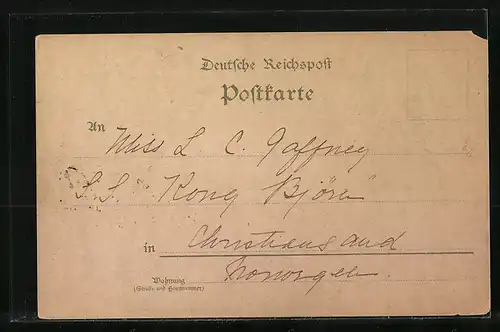 Deutsche Reichspost
Postkarte
An Miss L. C. Gaffney
S.S. "Kong Björn"
in Christiansand
Norwegen.
Wohnung
(Straße und Hausnummer)